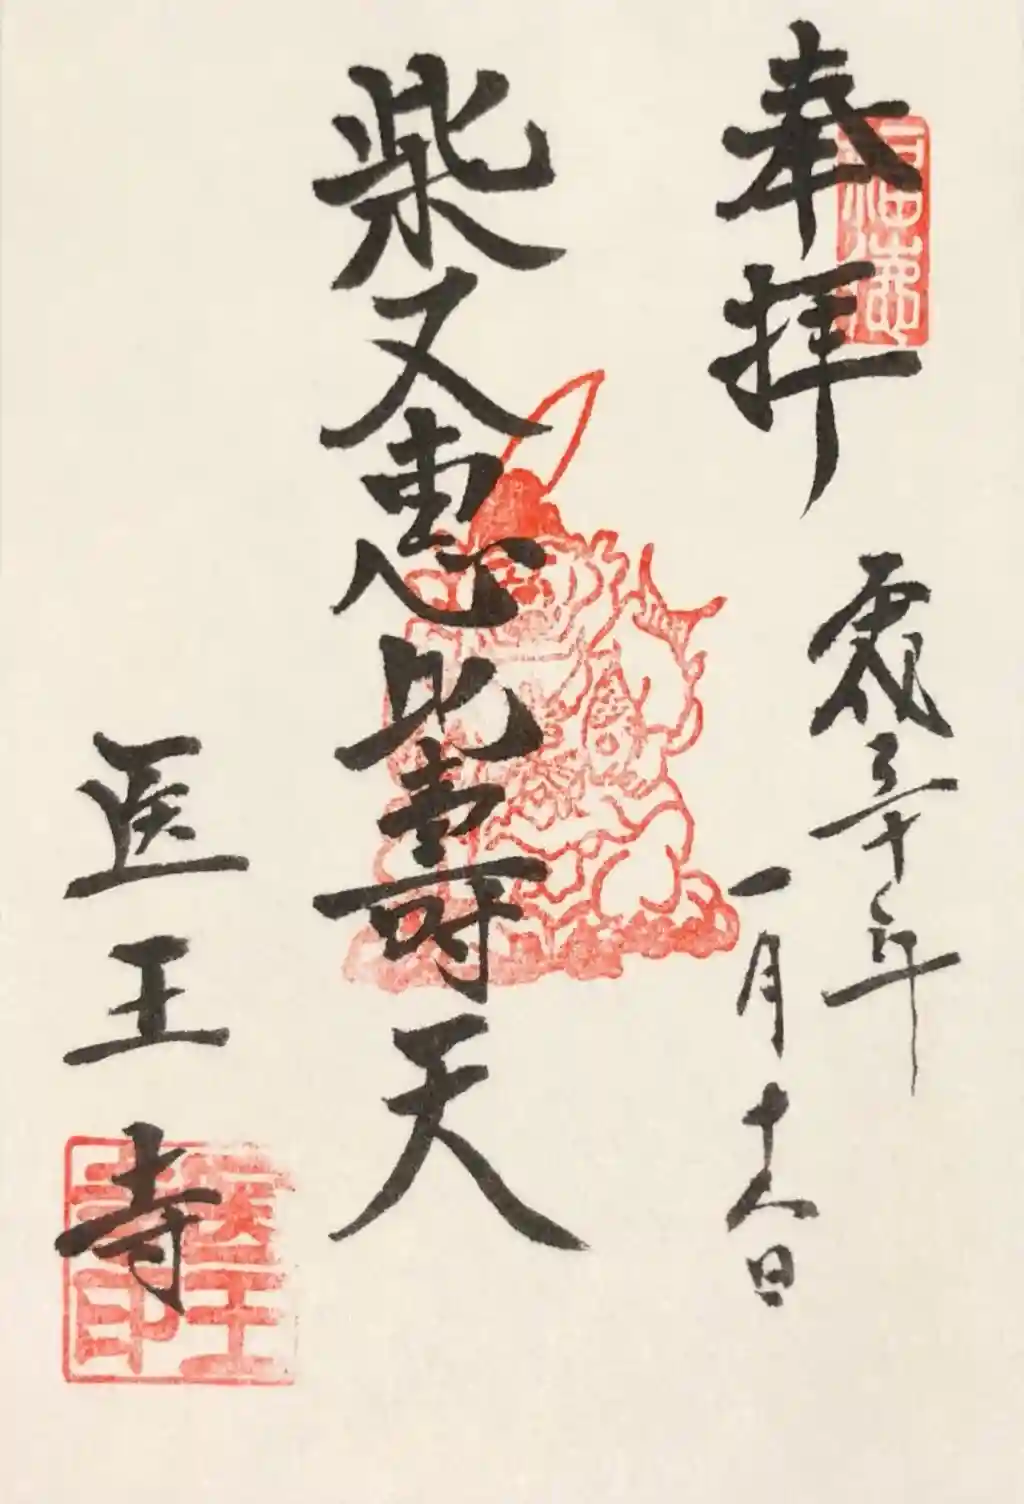 奉拝
平成三十年
一月十八日
柴又恵比壽天
医王寺
医王
寺印